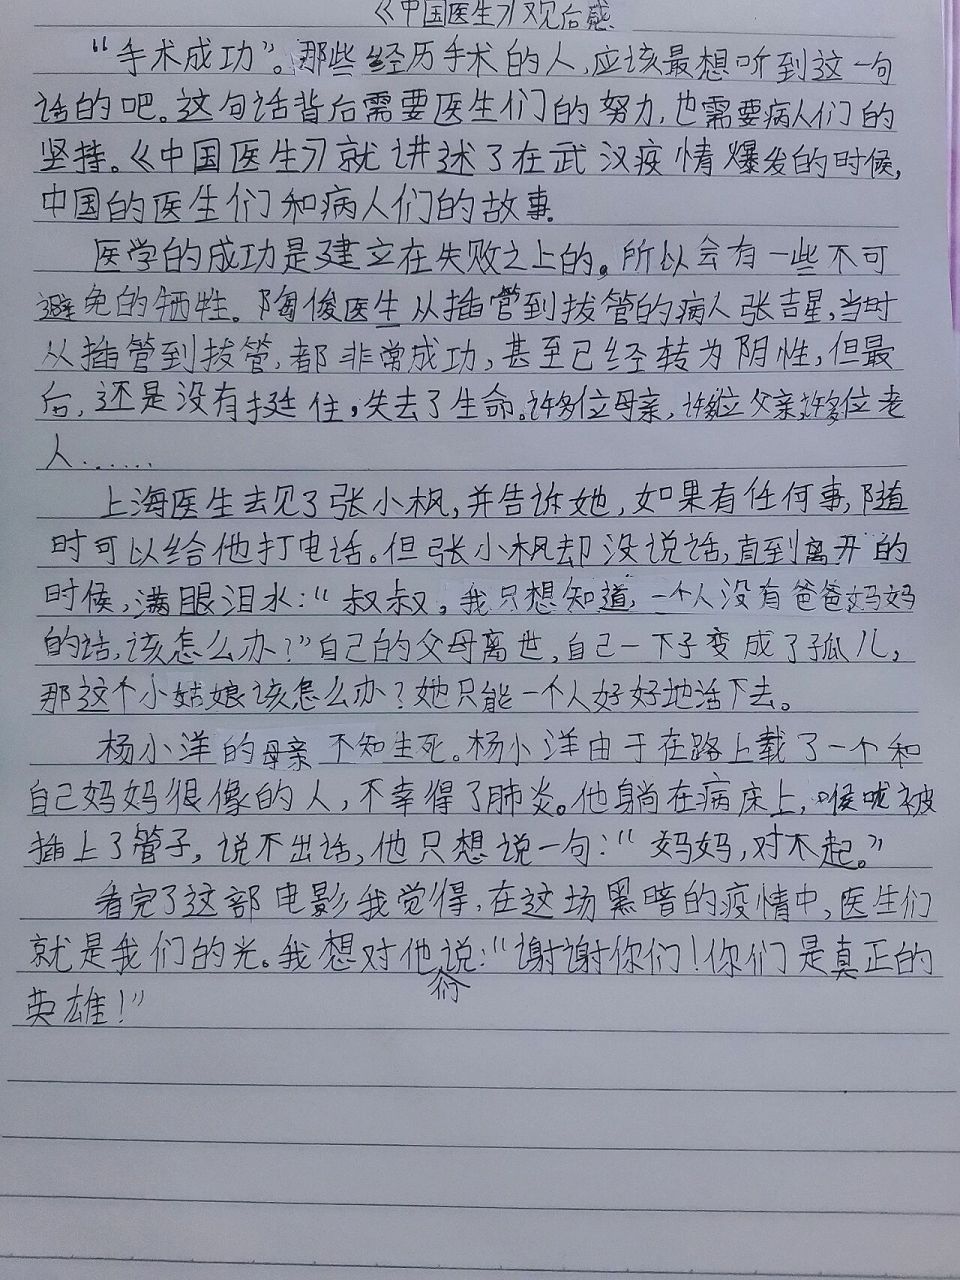 《中国医生》观后感
“手术成功”。那些经历手术的人,应该最想听到这一句
话的吧。这句话背后需要医生们的努力,也需要病人们的
坚持。《中国医生》就讲述了在武汉疫情爆发的时候,
中国的医生们和病人们的故事.
医学的成功是建立在失败之上的。所以会有一些不可
避免的牺牲。陶俊医生从插管到拔管的病人张吉星,当时
从插管到拔管,都非常成功,甚至已经转为阴性,但最
后,还是没有挺住,失去了生命。许多位母亲,许多位父亲,许多位老
人......
上海医生去见了张小枫,并告诉她,如果有任何事,随
时可以给他打电话。但张小枫却没说话,直到离开的
时候,满眼泪水:“叔叔,我只想知道,一个人没有爸爸妈妈
的话,该怎么办?”自己的父母离世,自己一下子变成了孤儿,
那这个小姑娘该怎么办?她只能一个人好好地活下去。
杨小洋的母亲不知生死。杨小洋由于在路上载了一个和
自己妈妈很像的人,不幸得了肺炎。他躺在病床上,喉咙被
插上了管子,说不出话,他只想说一句:“妈妈,对不起。”
看完了这部电影我觉得,在这场黑暗的疫情中,医生们
就是我们的光。我想对他们说:“谢谢你们!你们是真正的
英雄!”